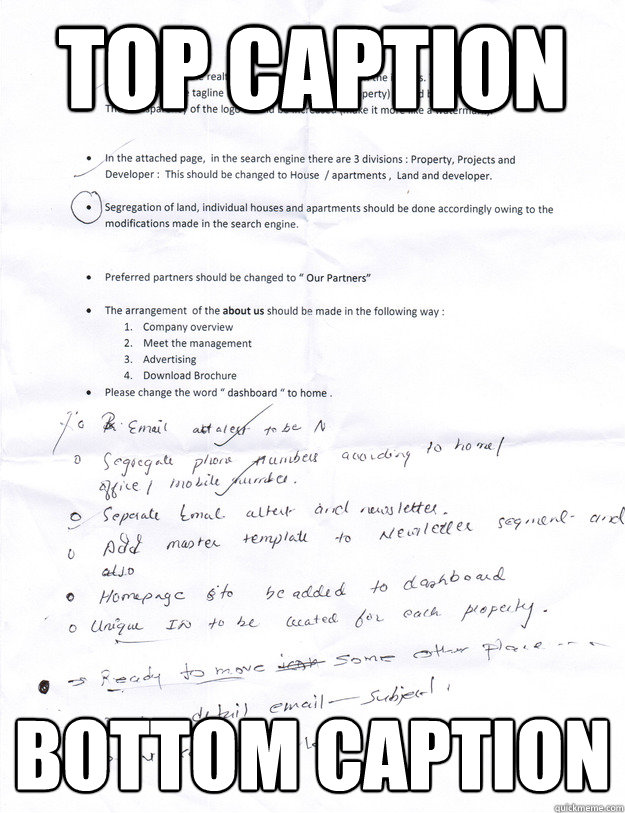 TOP CAPTION
tagline
of the logo
• In the attached page, in the search engine there are 3 divisions : Property, Projects and
Developer : This should be changed to House / apartments , Land and developer.
• Segregation of land, individual houses and apartments should be done accordingly owing to the
modifications made in the search engine.
• Preferred partners should be changed to “ Our Partners”
• The arrangement of the about us should be made in the following way :
1. Company overview
2. Meet the management
3. Advertising
4. Download Brochure
• Please change the word “ dashboard “ to home .
Email to be N
Segregate phone numbers according to home/
office/ mobile number.
Separate Email alert and newsletter.
Add master template to Newsletter segment and
also
Homepage to be added to dashboard
Unique IN to be created for each property.
→ Ready to move some other place
detail email - Subject
BOTTOM CAPTION
quickmeme.com